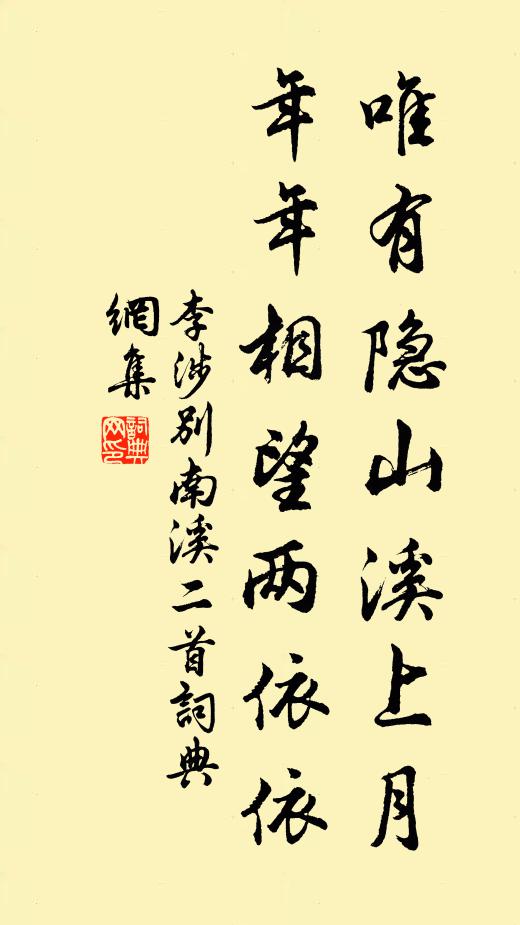 唯有隐山溪上月
年年相望两依依
李涉别南溪二首詞典
網集
詞典网印